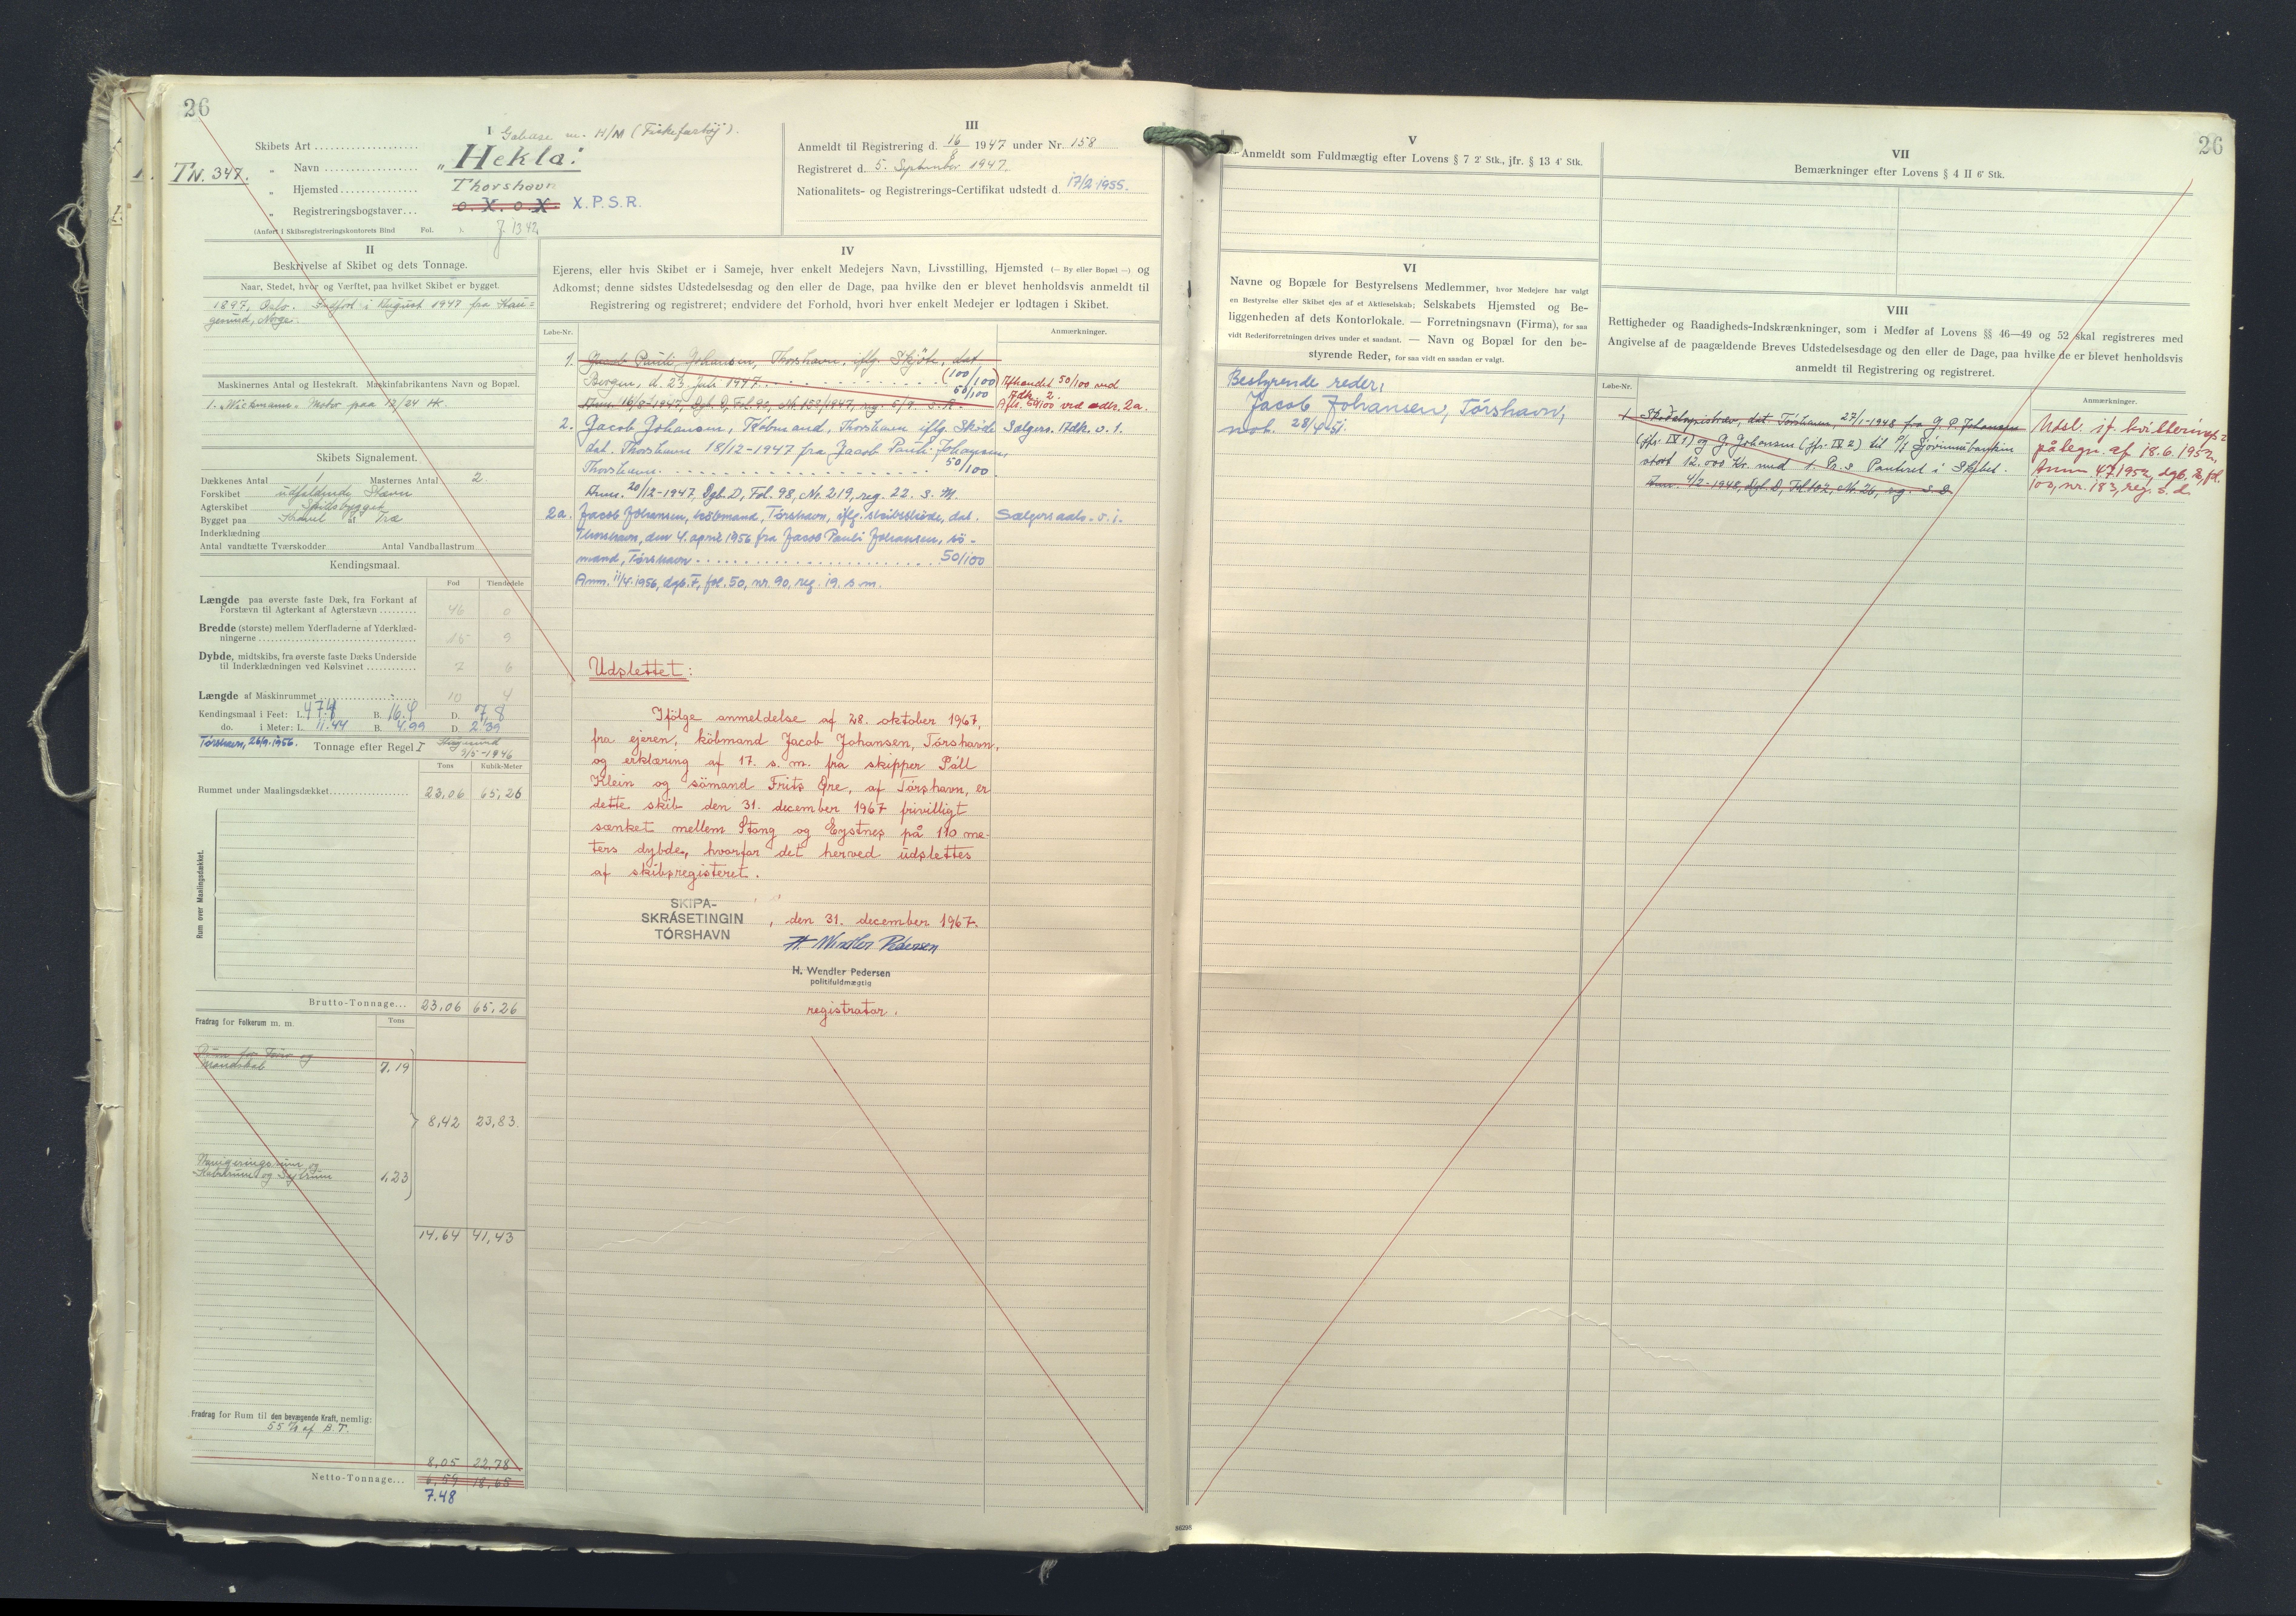 26
I
Skibets Art
Galease m. H/M (Fiskefartöj).
TN. 347.
„ Navn
„Hekla"
„ Hjemsted
Thorshavn
„ Registreringsbogstaver...
o. X. o. X. X.P.S.R.
(Anført i Skibsregistreringskontorets Bind Fol. ).
J. 1342
II
Beskrivelse af Skibet og dets Tonnage.
Naar, Stedet, hvor og Værftet, paa hvilket Skibet er bygget.
1897, Oslo. Indført i August 1947 fra Hau=
gesund, Norge.
Maskinernes Antal og Hestekraft. Maskinfabrikantens Navn og Bopæl.
1. „Wickmann" Motor paa 12/24 HK.
Skibets Signalement.
Dækkenes Antal 1 Masternes Antal 2.
Forskibet udfaldende Stævn
Agterskibet Spidsbygget
Bygget paa Kravel af Træ
Inderklædning
Antal vandtætte Tværskodder Antal Vandballastrum
Kendingsmaal.
Fod Tiendedele
Længde paa øverste faste Dæk, fra Forkant af
Forstævn til Agterkant af Agterstævn 46 0
Bredde (største) mellem Yderfladerne af Yderklæd-
ningerne 15 9
Dybde, midtskibs, fra øverste faste Dæks Underside
til Inderklædningen ved Kølsvinet 7 6
Længde af Maskinrummet 10 4
Kendingsmaal i Feet: L. 47.4 B. 16.4 D. 7.8
do. i Meter: L. 11.44 B. 4.99 D. 2.39
Tórshavn, 26/9.1956. Tonnage efter Regel I
Haugesund
3/5-1946
Tons Kubik-Meter
Rummet under Maalingsdækket 23,06 65,26
Rum over Maalingsdækket.
Brutto-Tonnage... 23,06 65,26
Fradrag for Folkerum m. m. Tons
Rum for Fører og
Mandskab 7.19
8,42 23,83
Navigeringsrum og
Kabelrum og Sejlrum 1,23
14,64 41,43
Fradrag for Rum til den bevægende Kraft, nemlig:
55 % af B.T.
8,05 22,78
Netto-Tonnage... 6,59 18,65
7.48
III
Anmeldt til Registrering d. 16/8 1947 under Nr. 158
Registreret d. 5. September 1947.
Nationalitets- og Registrerings-Certifikat udstedt d. 17/2 1955.
IV
Ejerens, eller hvis Skibet er i Sameje, hver enkelt Medejers Navn, Livsstilling, Hjemsted (— By eller Bopæl —) og
Adkomst; denne sidstes Udstedelsesdag og den eller de Dage, paa hvilke den er blevet henholdsvis anmeldt til
Registrering og registreret; endvidere det Forhold, hvori hver enkelt Medejer er lodtagen i Skibet.
Løbe-Nr. Anmærkninger.
1. Jacob Pauli Johansen, Thorshavn, iflg. Skjöte, dat.
Bergen, d. 23. Juli 1947. (100/100)
50/100
Anm. 16/8-1947, Dgb. D, Fol. 90, Nr. 158/1947, reg. 5/9. s. A.
Afhændet 50/100 ved
Adk. 2.
Afh. 50/100 ved adk. 2a.
2. Jacob Johansen, Købmand, Thorshavn iflg. Skøde
dat. Thorshavn 18/12-1947 fra Jacob Pauli Johansen,
Thorshavn. 50/100
Anm. 20/12-1947, Dgb. D, Fol. 98, Nr. 219, reg. 22. s. M.
Sælgers. Adk. v. 1.
2a. Jacob Johansen, købmand, Tórshavn, iflg. skibsskøde, dat.
Thorshavn, den 4. april 1956 fra Jacob Pauli Johansen, sö-
mand, Tórshavn 50/100
Anm. 11/4. 1956, dgb. F, fol. 50, nr. 90, reg. 19. s. m.
Sælgers adk. v. 1.
Udslettet:
Ifölge anmeldelse af 28. oktober 1967,
fra ejeren, köbmand Jacob Johansen, Tórshavn,
og erklæring af 17. s. m. fra skipper Páll
Klein og sömand Frits Øre, af Tórshavn, er
dette skib den 31. december 1967 frivilligt
sænket mellem Stong og Eystnes på 110 me-
ters dybde, hvorfor det herved udslettes
af skibsregisteret.
SKIPA-
SKRÁSETINGIN
TÓRSHAVN
, den 31. december 1967.
H. Wendler Pedersen
H. Wendler Pedersen
politifuldmægtig
registrator.
26
V
Anmeldt som Fuldmægtig efter Lovens § 7 2' Stk., jfr. § 13 4' Stk.
VI
Navne og Bopæle for Bestyrelsens Medlemmer, hvor Medejere har valgt
en Bestyrelse eller Skibet ejes af et Aktieselskab; Selskabets Hjemsted og Be-
liggenheden af dets Kontorlokale. — Forretningsnavn (Firma), for saa
vidt Rederiforretningen drives under et saadant. — Navn og Bopæl for den be-
styrende Reder, for saa vidt en saadan er valgt.
Bestyrende reder,
Jacob Johansen, Tórshavn,
not. 28/4-51.
VII
Bemærkninger efter Lovens § 4 II 6' Stk.
VIII
Rettigheder og Raadigheds-Indskrænkninger, som i Medfør af Lovens §§ 46—49 og 52 skal registreres med
Angivelse af de paagældende Breves Udstedelsesdage og den eller de Dage, paa hvilke de er blevet henholdsvis
anmeldt til Registrering og registreret.
Løbe-Nr. Anmærkninger.
1 Skadesløsbrev, dat. Tórshavn, 27/1-1948 fra J. P. Johansen
(jfr. IV 1) og J. Johansen (jfr. IV 2) til P/f Sjóvinnubankin
stort 12.000 Kr. med 1. Pr. s Panteret i Skibet.
Anm. 4/2-1948, Dgb. D, Fol. 102, Nr. 26, reg. s. D.
Udsl. if. kvitterings=
påtegn. af 18.6.1952,
Anm. 4.7.1952, dgb. E, fol.
100, nr. 183, reg. s. d.
86298